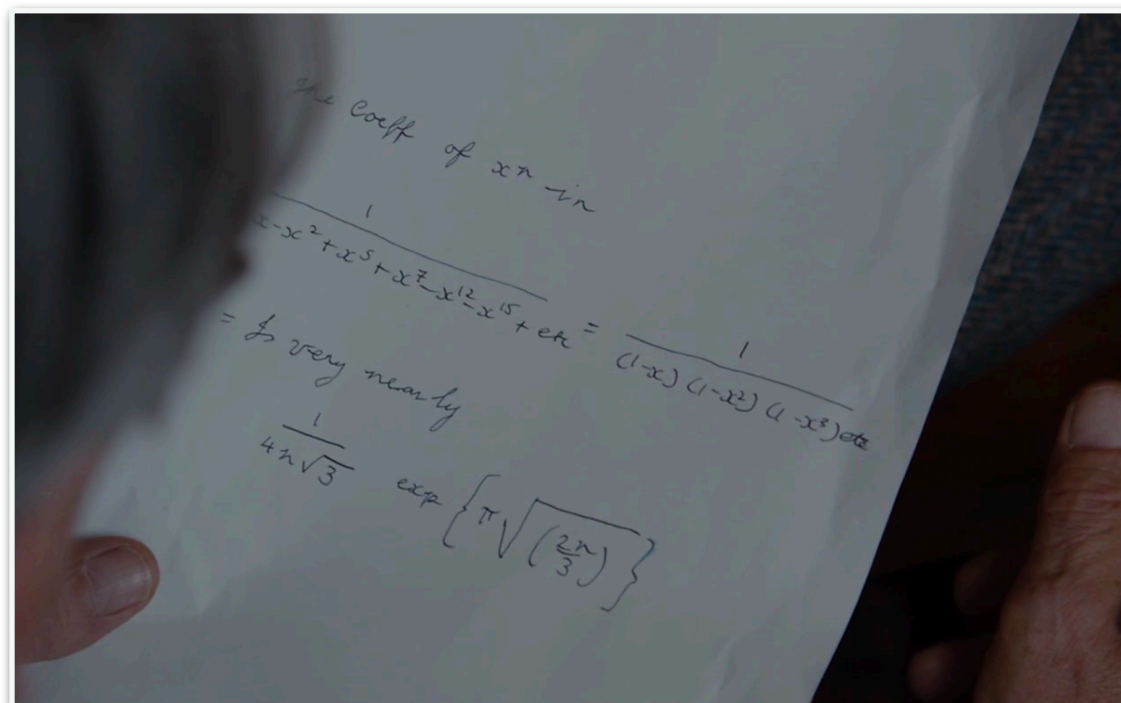 The coeff of xⁿ in
1
x-x² + x⁵ + x⁷ - x¹² - x¹⁵ + etc = 1
(1-x) (1-x²) (1-x³) etc
= Is very nearly
1
4n√3 exp {π√(2n/3)}